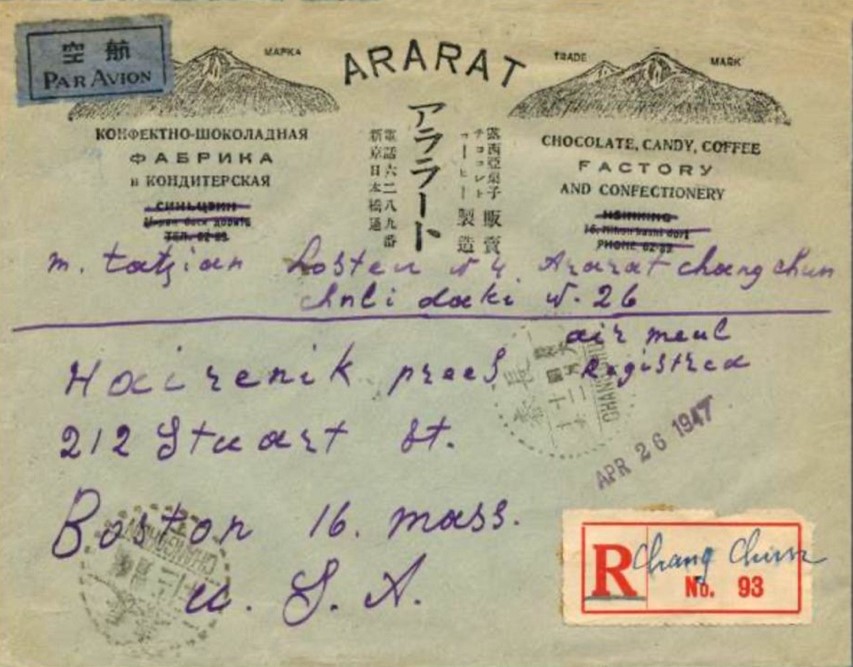 空航
PAR AVION
МАРКА
ARARAT
TRADE
MARK
КОНФЕКТНО-ШОКОЛАДНАЯ
ФАБРИКА
и КОНДИТЕРСКАЯ
СИНЬЦЗИН
ТЕЛ. 62-89
アララート
露西亞菓子
チョコレート
コーヒー
販賣
製造
電話六二八九番
新京日本橋通
CHOCOLATE, CANDY, COFFEE
FACTORY
AND CONFECTIONERY
HSINKING
PHONE 62-89
m. tatzian Ararat chang chun
daki N. 26
air meul
Registred
Hairenik prees
212 Stuart St.
Boston 16. mass.
U. S. A.
長春
CHANGCHUN
APR 26 1947
R Chang Chun
No. 93
CHANGCHUN